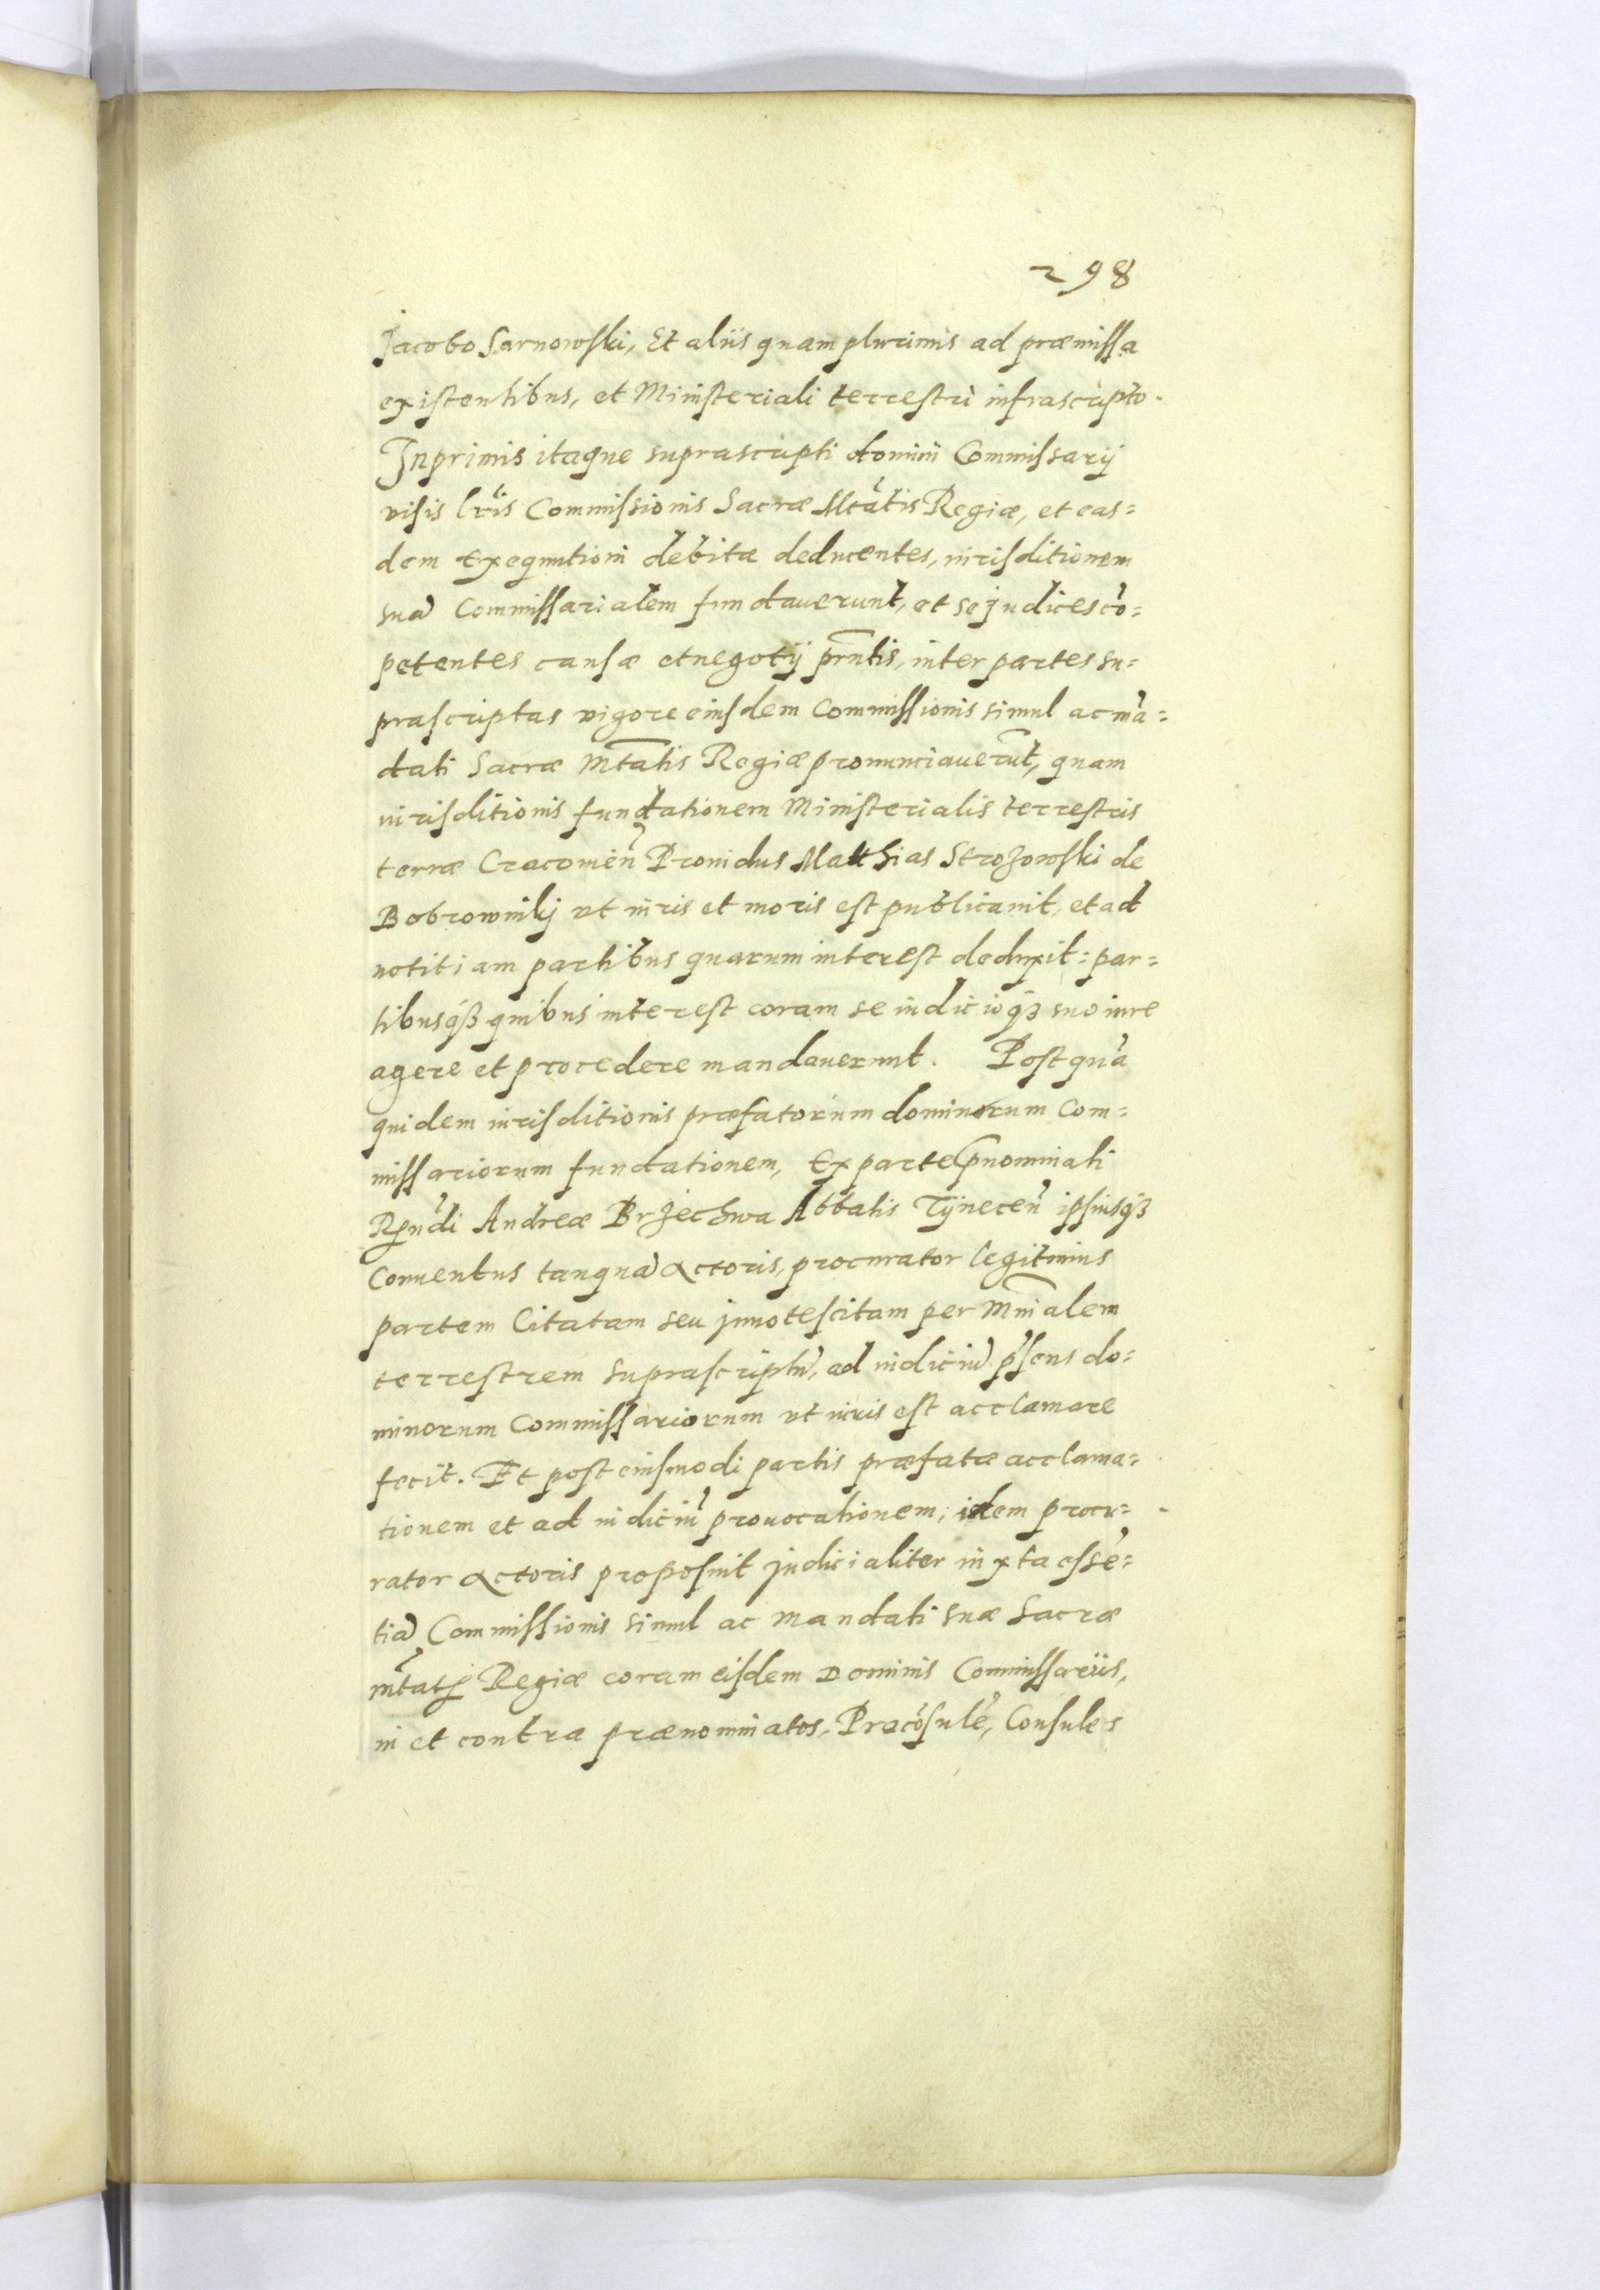 298
Jacobo Sarnowski, Et aliis quam plurimis ad præmissa
existentibus, et Ministeriali terrestri infrascripto.
Inprimis itaque suprascripti domini Commissarij
visis lr̃is Commissionis Sacræ Mtãtis Regiæ, et eas=
dem Exequutioni debitæ deducentes, iurisditionem
suã Commissarialem fundauerunt, et se judices cõ=
petentes causæ et negotij pr̃ntis, inter partes su=
prascriptas vigore eiusdem Commissionis simul ac mã=
dati Sacræ Mtãtis Regiæ pronunciauerũt, quam
iurisditionis fundationem Ministerialis terrestris
terræ Cracouieñ Prouidus Matthias Strozowski de
Bobrowniki vt iuris et moris est publicauit, et ad
notitiam partibus quarum interest deduxit: par=
tibusqꝫ quibus interest coram se iudicioqꝫ suo iure
agere et procedere mandauerunt. Post quã
quidem iurisditionis præfatorum dominorum Com=
missariorum fundationem, Ex parte p̃nominati
Rṇ̃di Andreæ Brzechwa Abbatis Tijneceñ ipsiusqꝫ
Conuentus tanquã Actoris, procurator legitimus
partem Citatam seu jnnotescitam per Mñialem
terrestrem suprascriptũ, ad iudiciũ p̃sens do=
minorum Commissariorum vt iuris est acclamare
fecit. Et post eiusmodi partis præfatæ acclama=
tionem et ad iudiciũ prouocationem, idem procu=
rator Actoris proposuit judicialiter iuxta essẽ=
tiã Commissionis simul ac Mandati suæ Sacræ
Mtãtis Regiæ coram eisdem Dominis Commissariis,
in et contra prænominatos, Præcõsulẽ, Consules